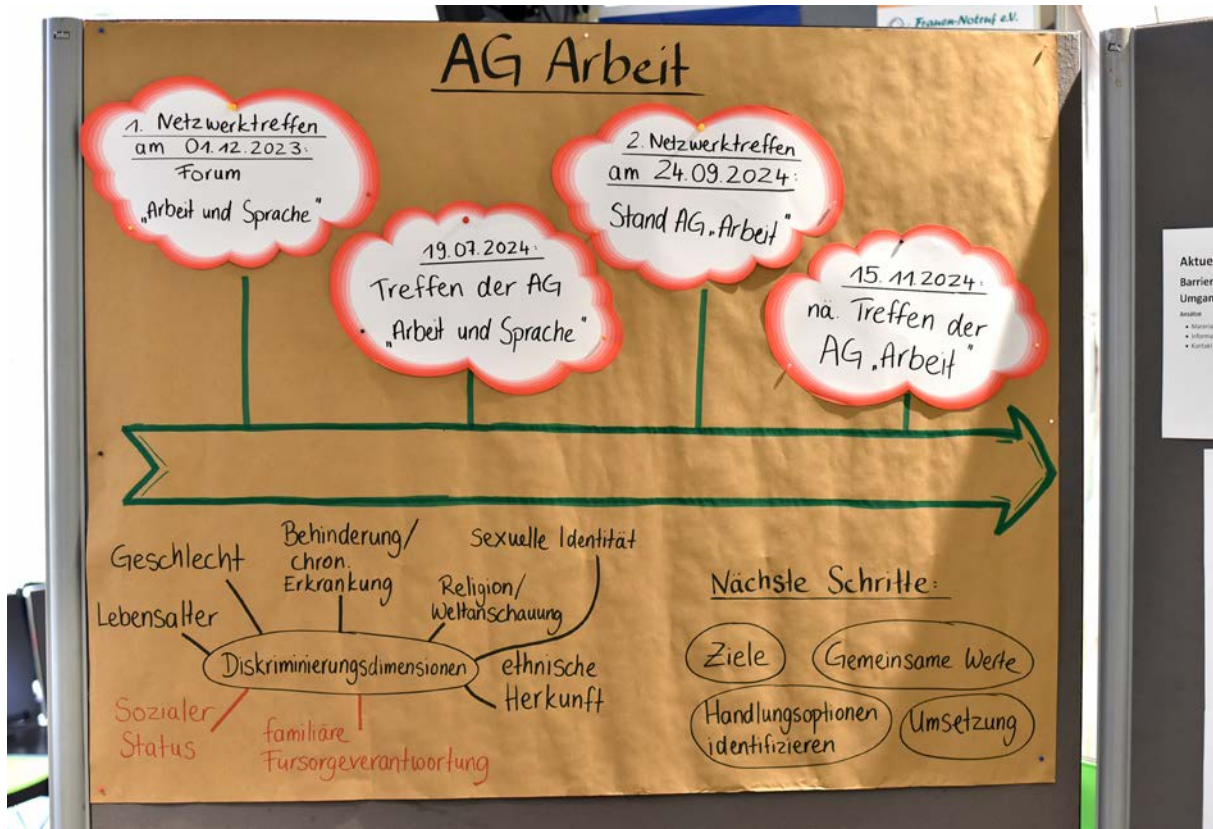 Frauen-Notruf e.V.
AG Arbeit
1. Netzwerktreffen
am 01.12.2023:
Forum
„Arbeit und Sprache"
19.07.2024:
Treffen der AG
„Arbeit und Sprache"
2. Netzwerktreffen
am 24.09.2024:
Stand AG „Arbeit"
15.11.2024:
nä. Treffen der
AG „Arbeit"
Geschlecht
Behinderung/
chron.
Erkrankung
Sexuelle Identität
Lebensalter
Religion/
Weltanschauung
Diskriminierungsdimensionen
ethnische
Herkunft
Sozialer
Status
familiäre
Fürsorgeverantwortung
Nächste Schritte:
Ziele
Gemeinsame Werte
Handlungsoptionen
identifizieren
Umsetzung
Aktue
Barrier
Umgan
Ansätze
• Materia
• Informa
• Kontakt